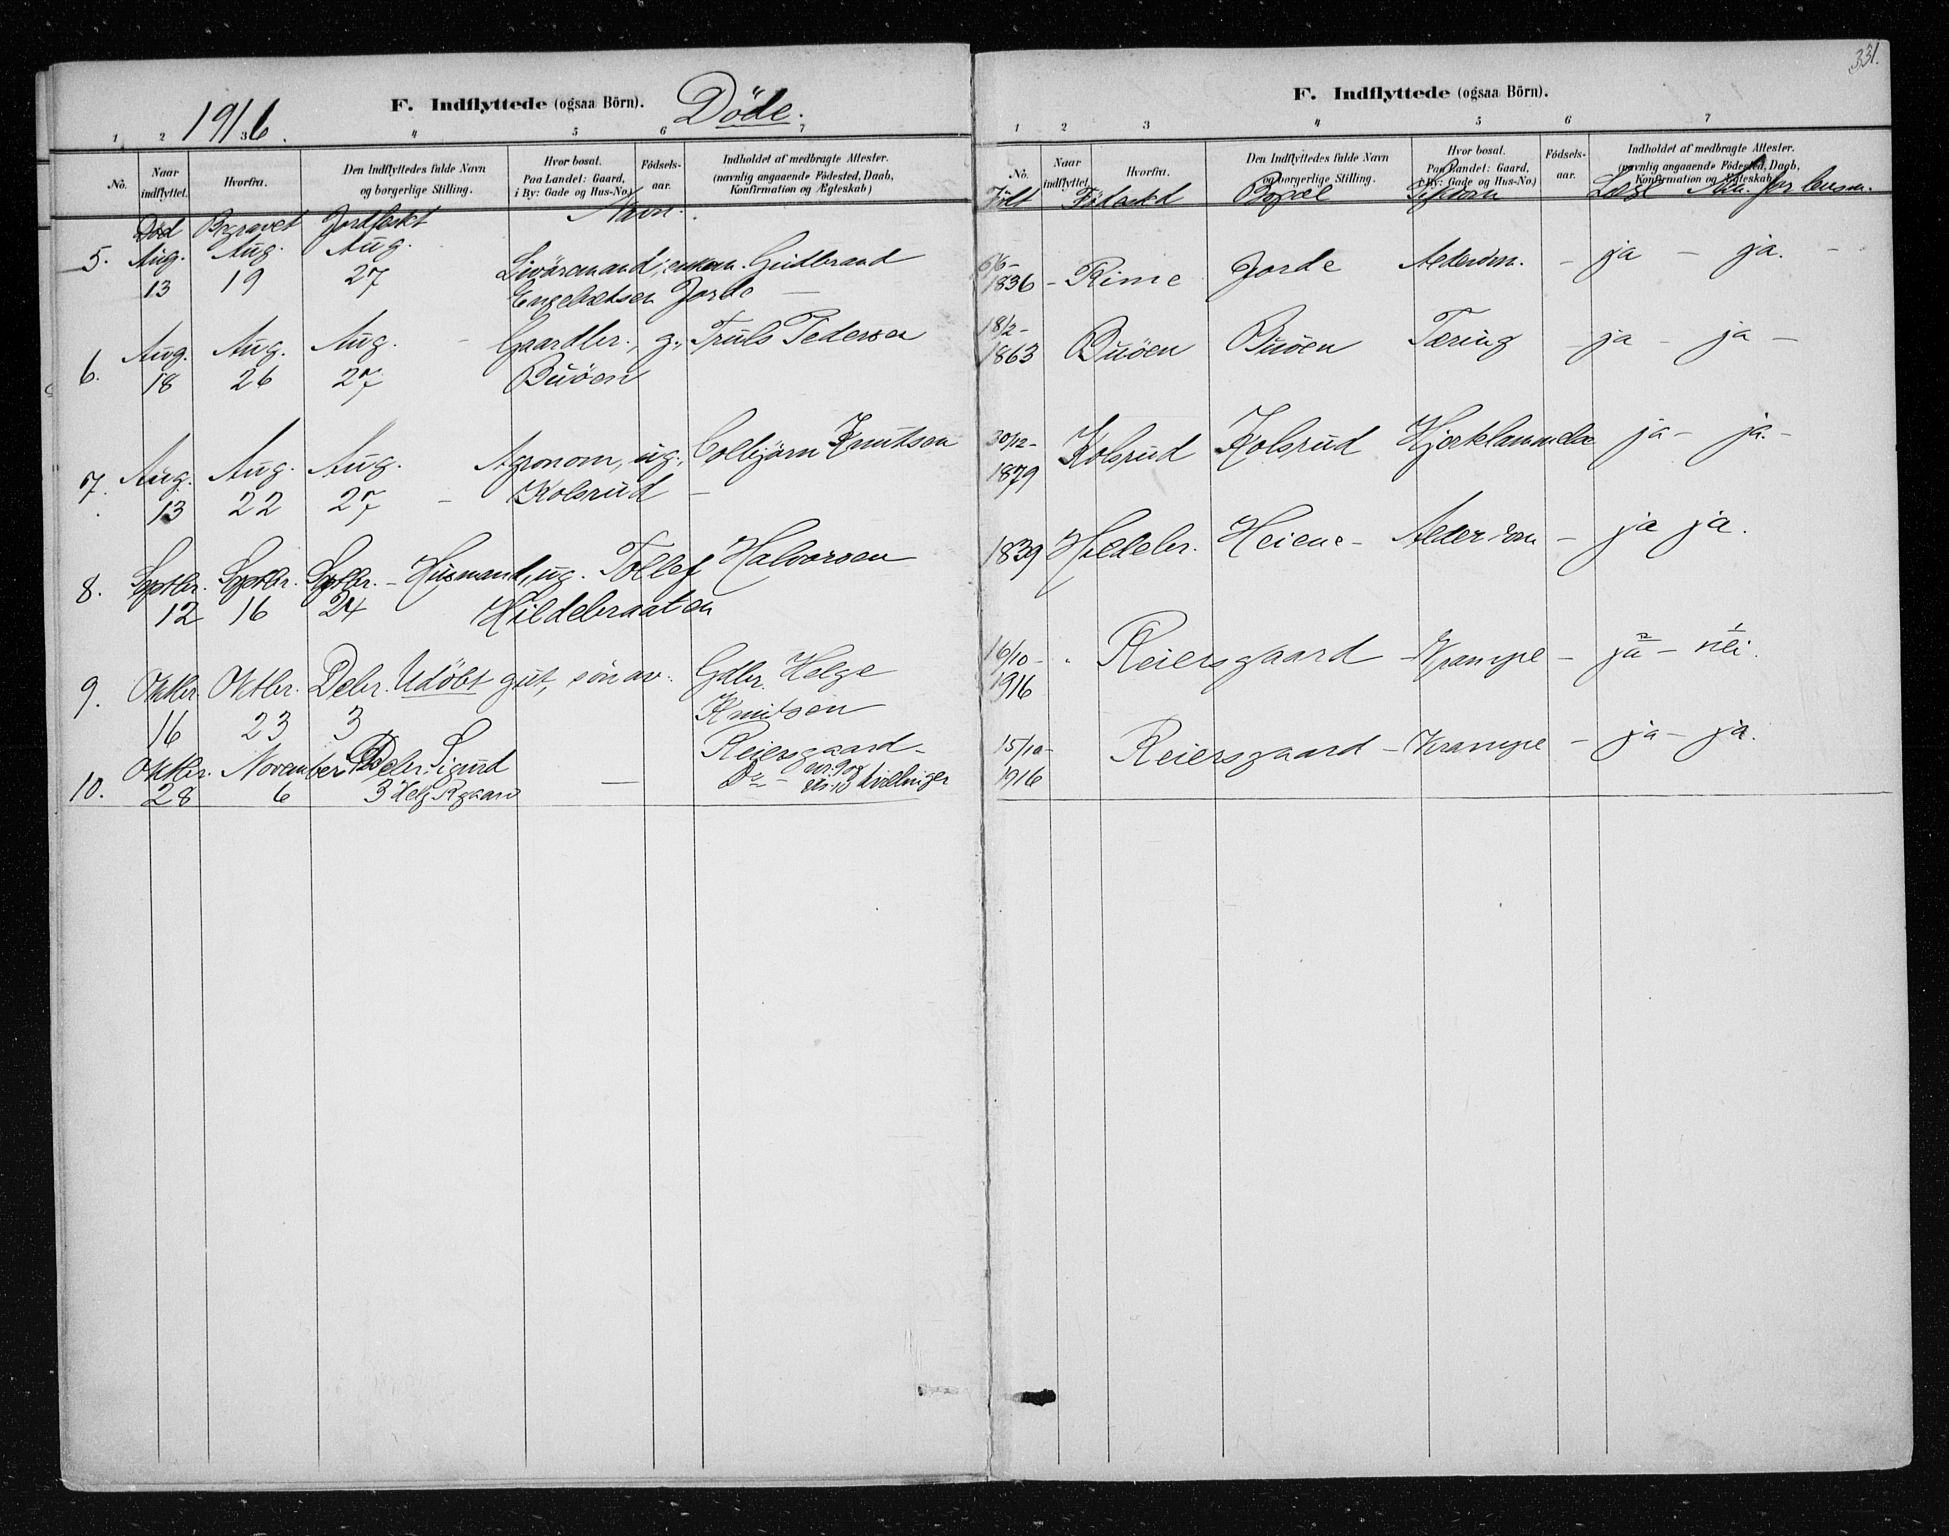 331.
1916. F. Indflyttede (ogsaa Börn). Döde.
1 2 3 4 5 6 7
No. Naar indflyttet. Hvorfra. Den Indflyttedes fulde Navn og borgerlige Stilling. Hvor bosat. Paa Landet: Gaard, i By: Gade og Hus-No.) Födsels-aar. Indholdet af medbragte Attester. (navnlig angaaende Födested, Daab, Konfirmation og Ægteskab)
Död Begravet Jordfæstet Navn.
5. Aug. Aug. Aug. Livöremand, enkem. Gudbrand
13 19 27 Engebretsen Jorde
6. Aug. Aug. Aug. Gaardbr., g., Truls Pedersen
18 26 27 Buöen
7. Aug. Aug. Aug. Agronom, ug., Colbjörn Knutsen
13 22 27 Kolsrud
8. Septbr. Septbr. Septbr. Husmand, ug. Tollef Halvorsen
12 16 24 Hildebraaten
9. Oktbr. Oktbr. Debr. Udöbt gut, sön av Gdbr. Helge
16 23 3 Knutsen
Reiersgaard
10. Oktbr. November Debr. Sigurd
28 6 3 Helg. Rgaard — Do nr. 9 og nr. 10 tvillinger
F. Indflyttede (ogsaa Börn).
1 2 3 4 5 6 7
No. Naar indflyttet. Hvorfra. Den Indflyttedes fulde Navn og borgerlige Stilling. Hvor bosat. Paa Landet: Gaard, i By: Gade og Hus-No.) Födsels-aar. Indholdet af medbragte Attester. (navnlig angaaende Födested, Daab, Konfirmation og Ægteskab)
Födt Födested Bopæl Sygdom Læge Anm. for lensm.
6/6 1836 - Rime Jorde Alderdom. - ja - ja. -
18/2 - 1863 Buöen Buöen Tæring - ja - ja -
30/12 - 1879 Kolsrud Kolsrud Hjerte ja - ja -
1839 Hildebr. Heiene - Alderdom - ja ja.
16/10 - 1916 Reiersgaard - Krampe - ja - nei.
15/10 - 1916 Reiersgaard - Krampe - ja - ja.